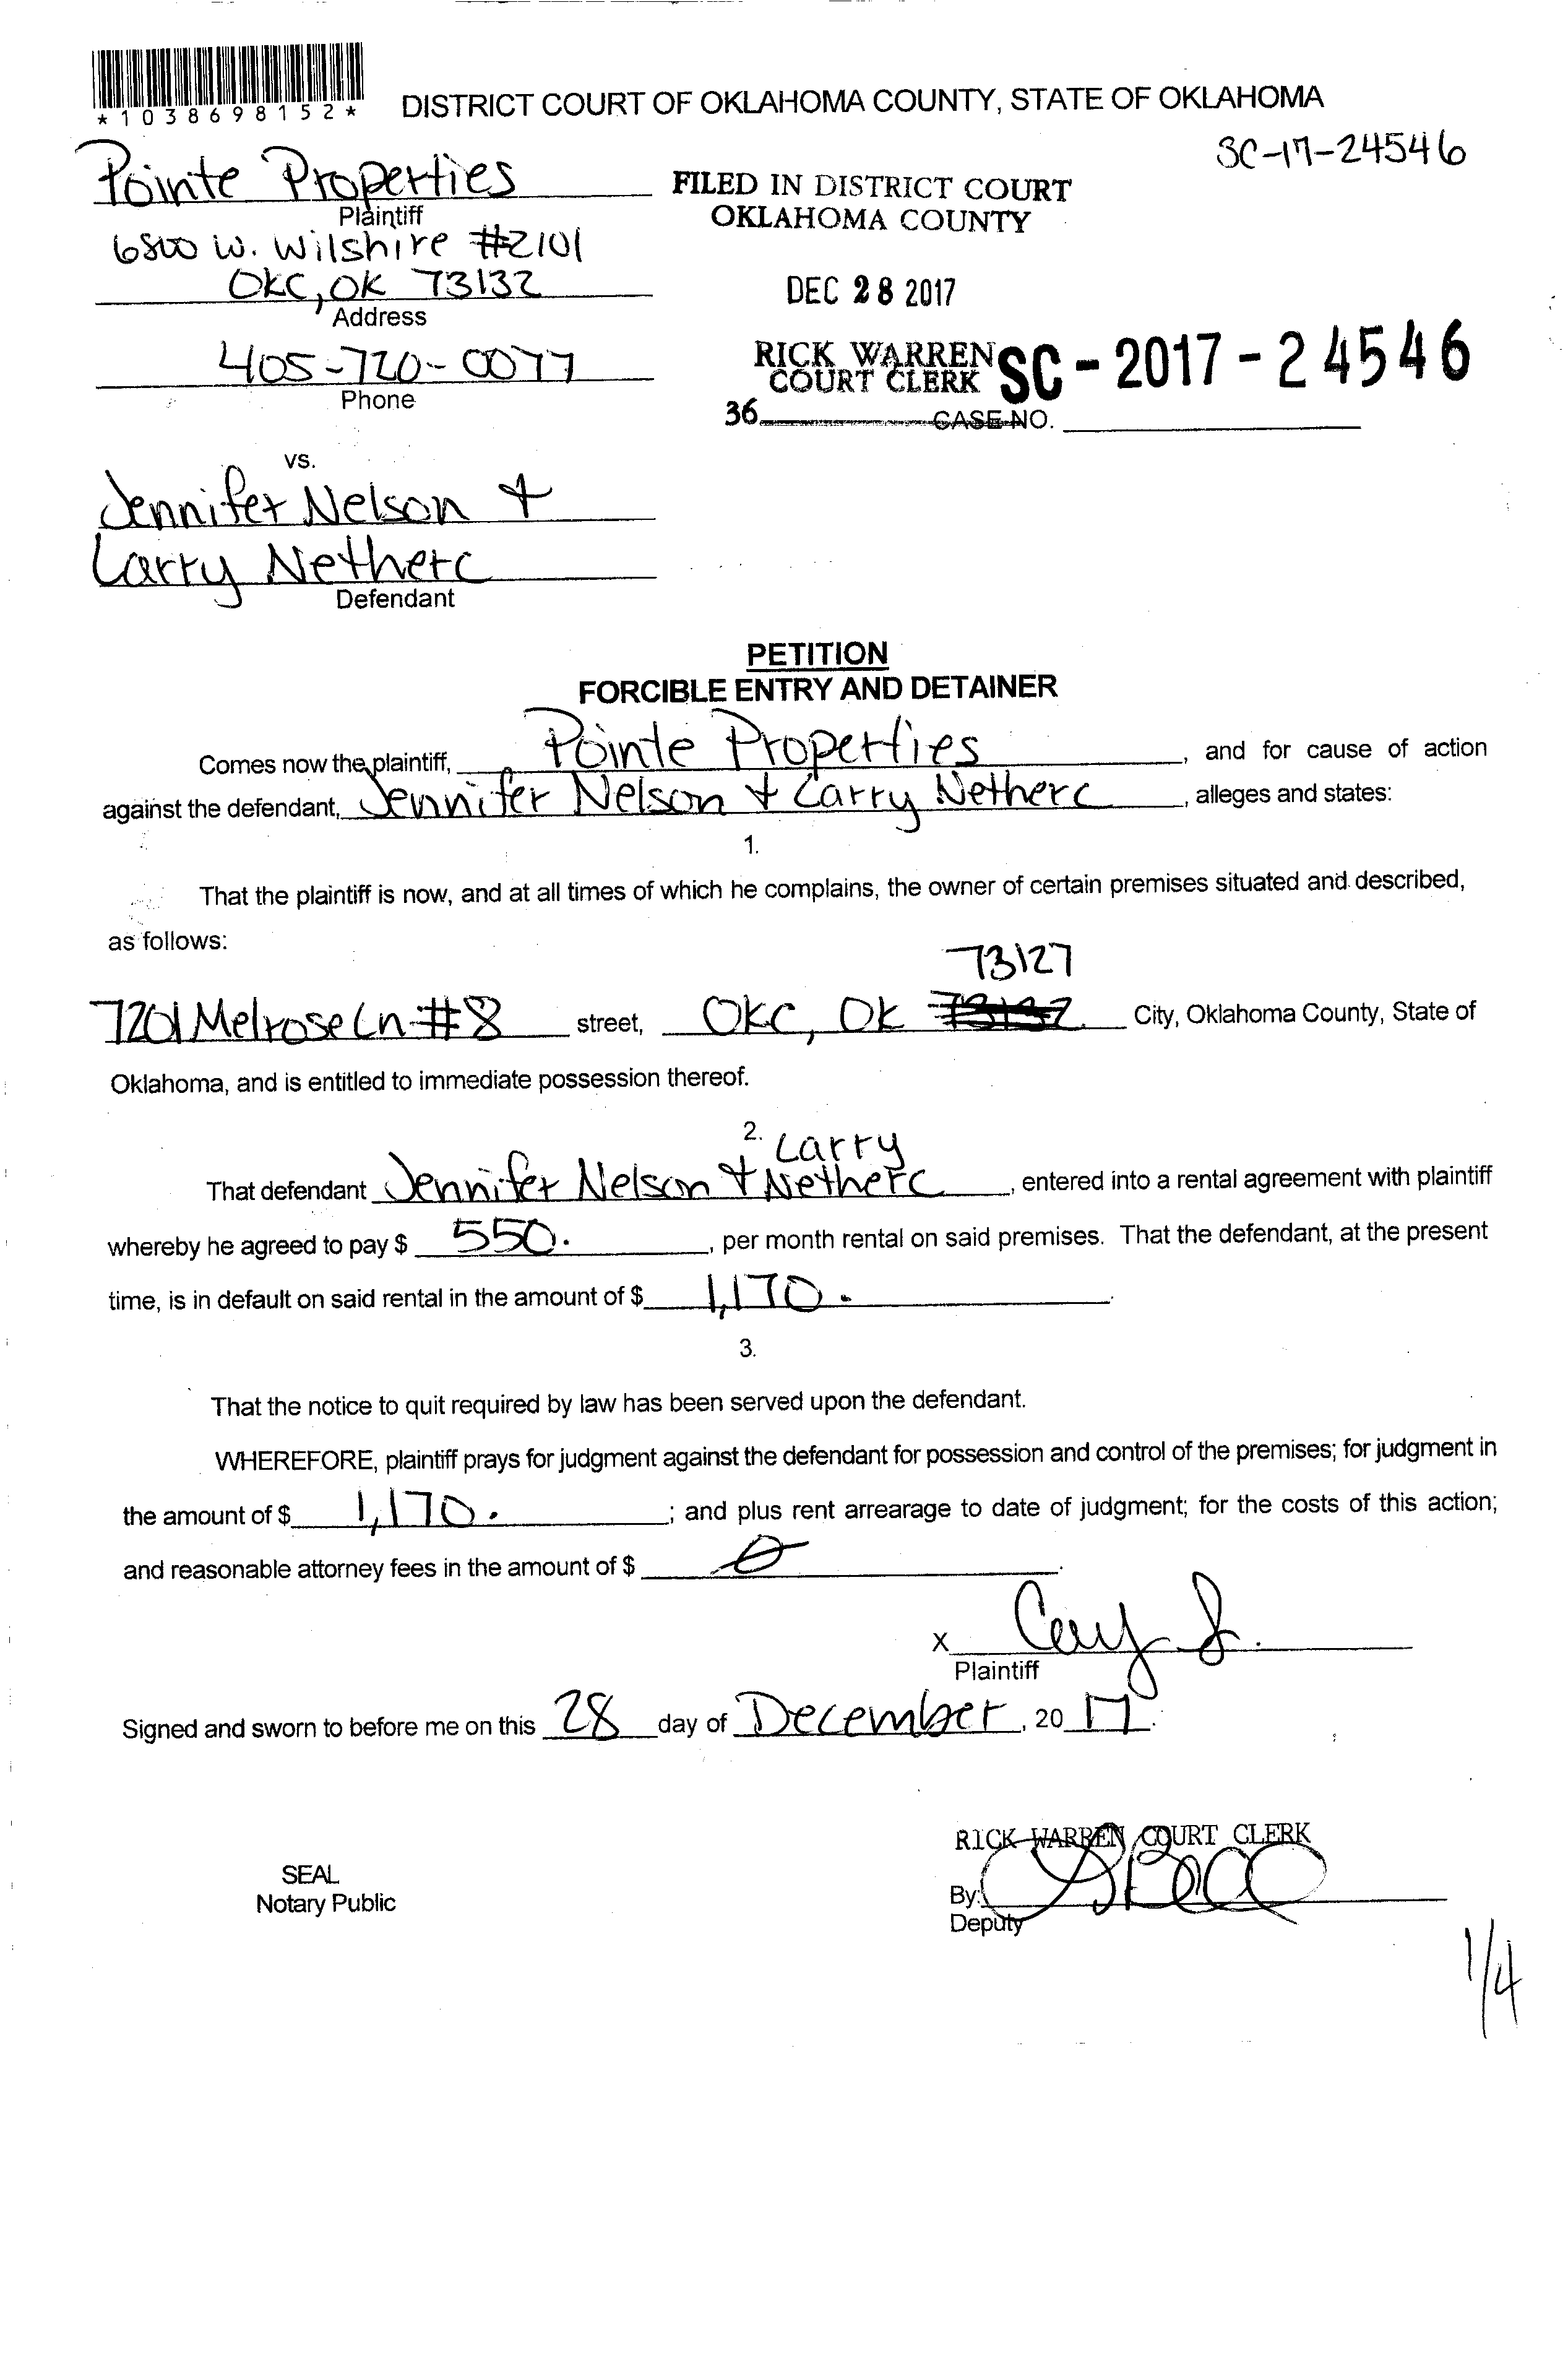 *1038698152*
DISTRICT COURT OF OKLAHOMA COUNTY, STATE OF OKLAHOMA
SC-17-24546
Pointe Properties
Plaintiff
6800 W. Wilshire #2101
OKC, OK 73132
Address
405-720-0077
Phone
FILED IN DISTRICT COURT
OKLAHOMA COUNTY
DEC 28 2017
RICK WARREN
COURT CLERK
SC - 2017 - 24546
36 CASE NO.
vs.
Jennifer Nelson +
Larry Netherc
Defendant
PETITION
FORCIBLE ENTRY AND DETAINER
Comes now the plaintiff, Pointe Properties, and for cause of action
against the defendant, Jennifer Nelson + Larry Netherc, alleges and states:
1.
That the plaintiff is now, and at all times of which he complains, the owner of certain premises situated and described,
as follows:
73127
7201 Melrose Ln #8 street, OKC, OK 73132 City, Oklahoma County, State of
Oklahoma, and is entitled to immediate possession thereof.
2.
Larry
That defendant Jennifer Nelson + Netherc, entered into a rental agreement with plaintiff
whereby he agreed to pay $ 550., per month rental on said premises. That the defendant, at the present
time, is in default on said rental in the amount of $ 1,170..
3.
That the notice to quit required by law has been served upon the defendant.
WHEREFORE, plaintiff prays for judgment against the defendant for possession and control of the premises; for judgment in
the amount of $ 1,170. ; and plus rent arrearage to date of judgment; for the costs of this action;
and reasonable attorney fees in the amount of $ 0.
X
Plaintiff
Signed and sworn to before me on this 28 day of December, 20 17.
RICK WARREN COURT CLERK
SEAL
Notary Public
By:
Deputy
1/4